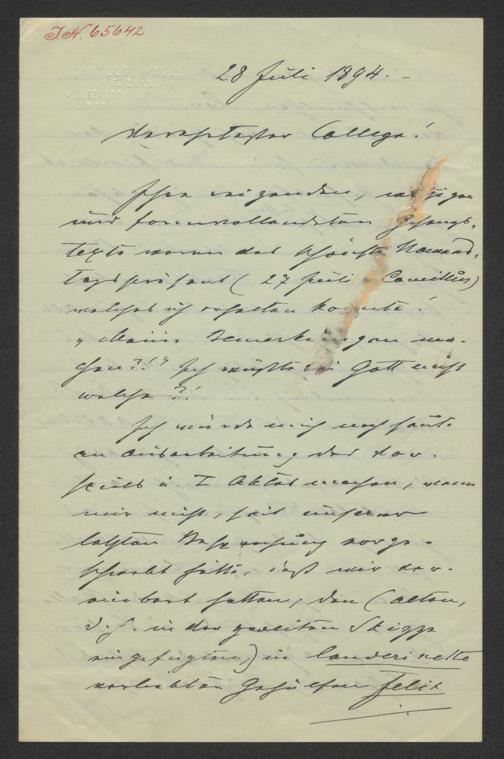 I.N. 65642
28 Juli 1894. –
Verehrtester College!
Ihre reizenden,
und formvollendeten Gesangs-
texte waren das schönste Namens-
tagspräsent (27 Juli Camillus)
welches ich erhalten konnte!
"Meine Bemerkungen ma-
chen?!" Ich wüßte bei Gott nicht
welche?!
Ich würde mich noch heute
an Ausarbeitung des Vor-
spiels u. I Aktes machen, wenn
mir nicht, seit unserer
letzten Besprechung vorge-
schwebt hätte, daß wir ver-
einbart hatten, den (alten,
d. h. in der zweiten Skizze
eingefügten,) in Landerinette
verliebten Gehülfen Felix